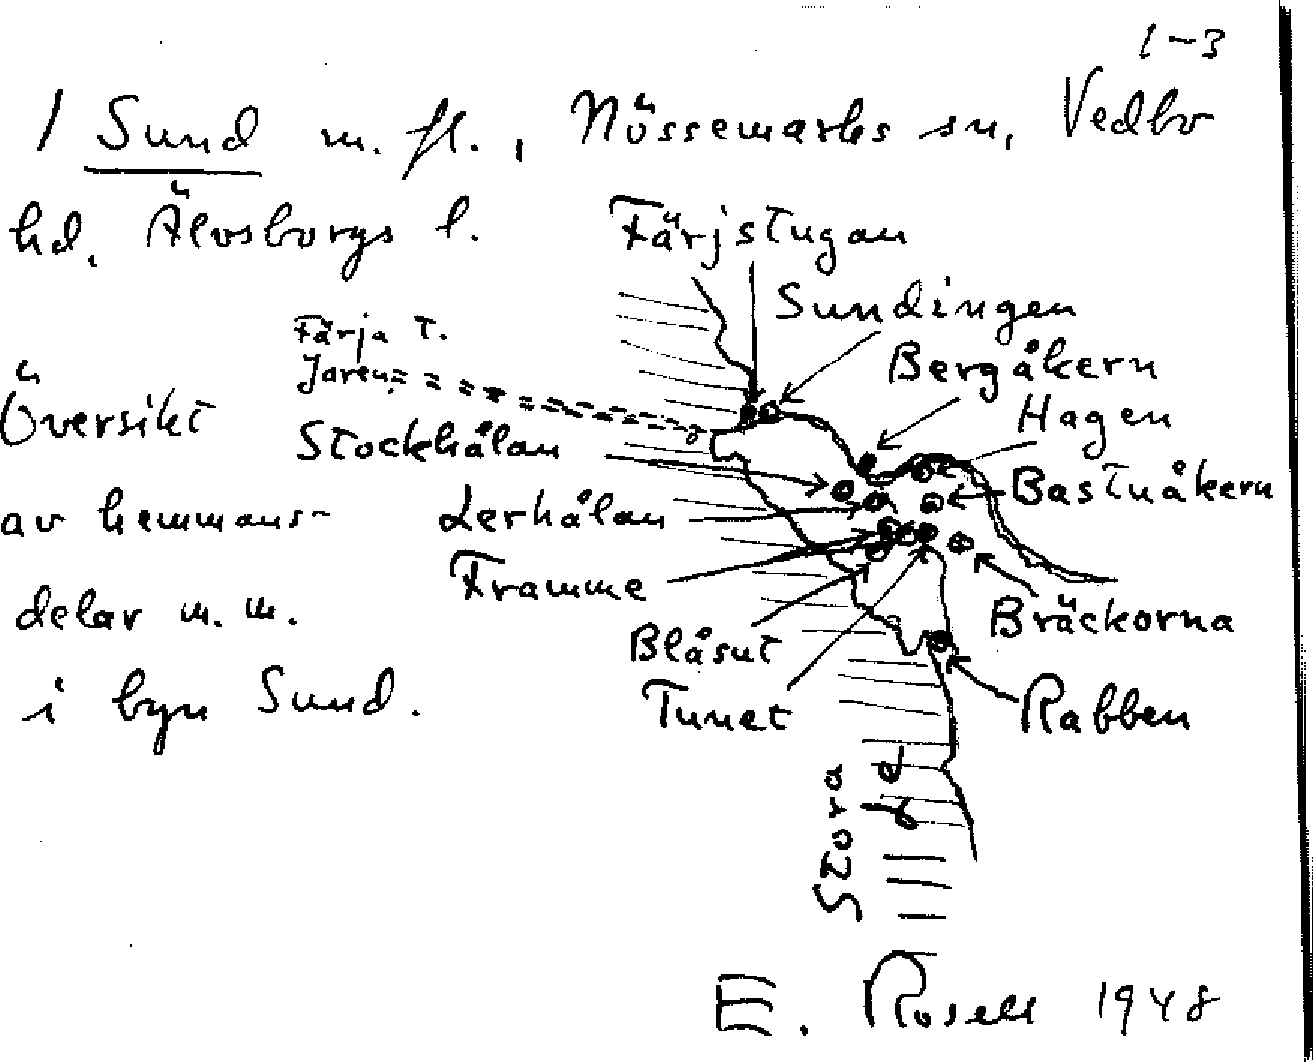 1-3
1 Sund m. fl., Nössemarks sn, Vedbo
hd. Älvsborgs l.
Färjstugan
Sundingen
Färja t.
Jaren
Bergåkern
Översikt
Hagen
Stockhålan
Bastuåkern
av hemmans-
Lerhålan
Framme
delar m. m.
Bräckorna
Blåsut
i byn Sund.
Tunet
Rabben
Stora Le
E. Rosell 1948